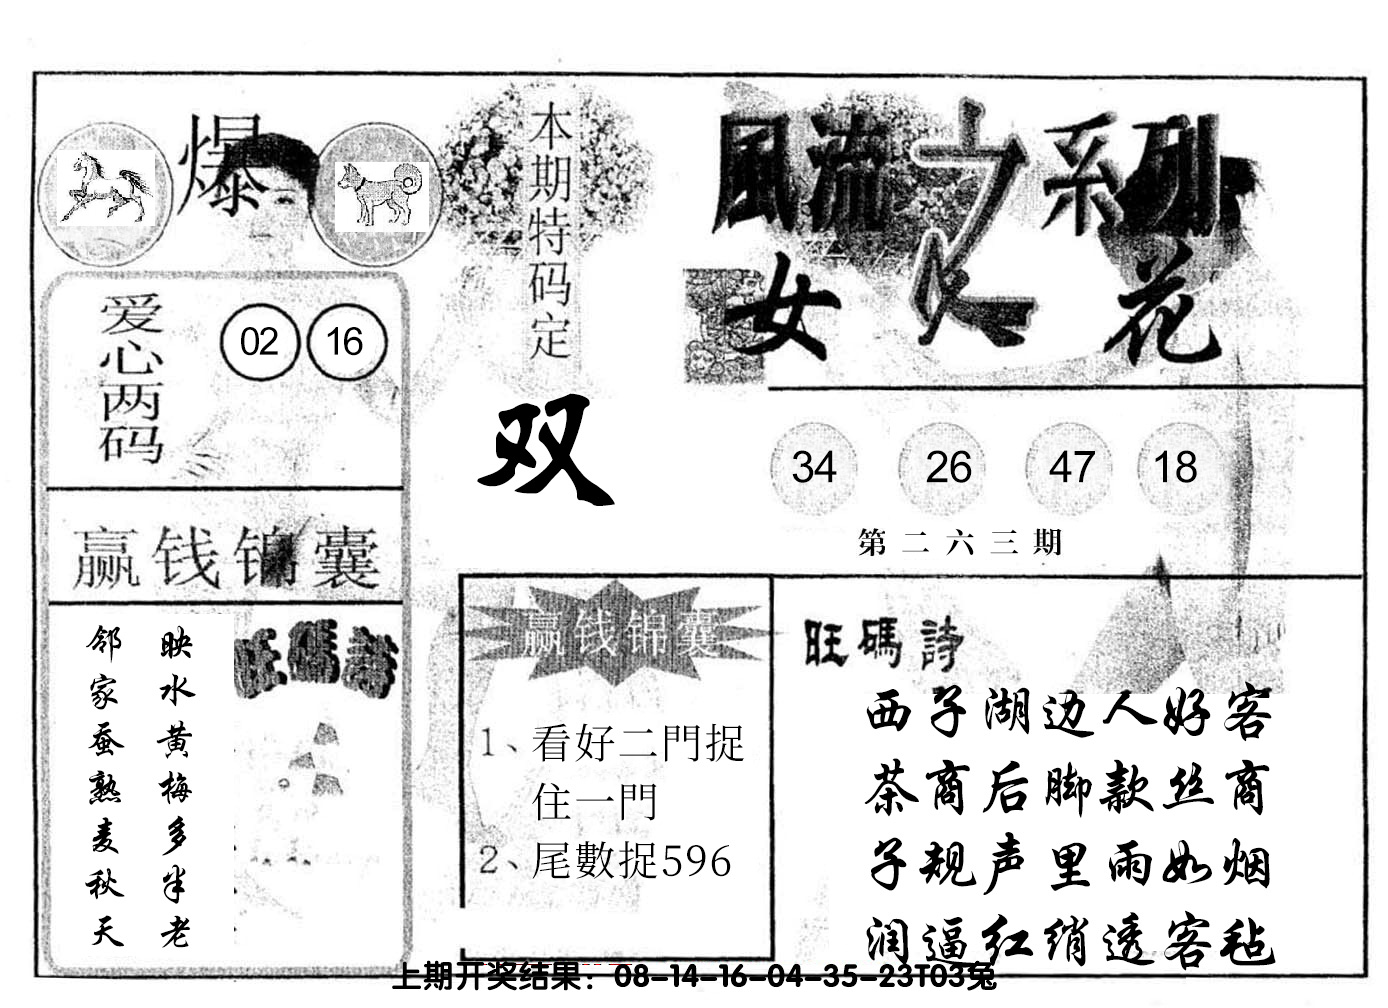 爆
本期特码定
双
風流之系列
女人花
爱心两码
02 16
34 26 47 18
第二六三期
赢钱锦囊
映水黄梅多半老
邻家蚕熟麦秋天
旺碼詩
赢钱锦囊
1、看好二門捉
住一門
2、尾數捉596
旺碼詩
西子湖边人好客
茶商后脚款丝商
子规声里雨如烟
润逼红绡透客毡
上期开奖结果：08-14-16-04-35-23T03兔